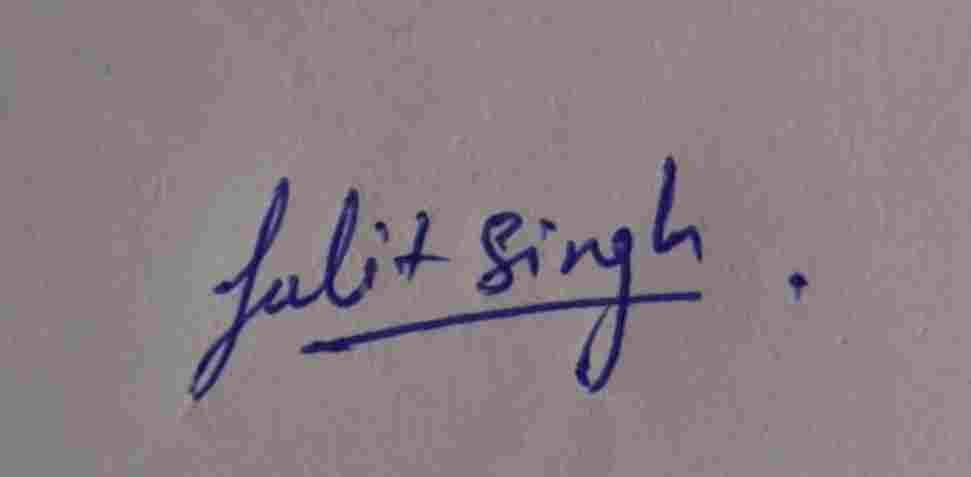 Lalit Singh.